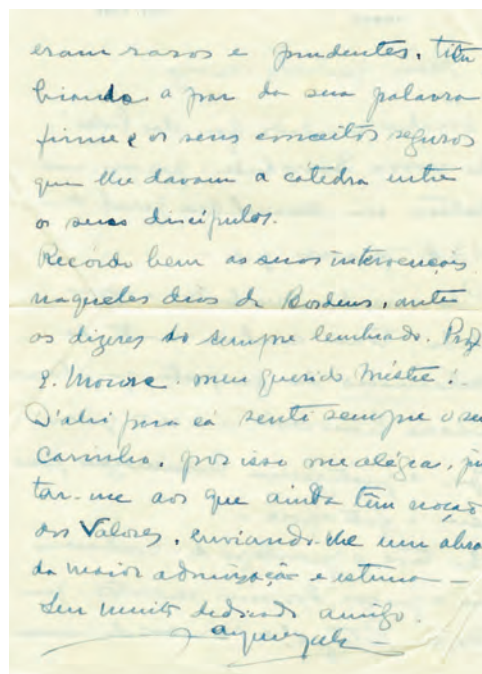 eram raros e prudentes, titu
biando a par da sua palavra
firme e os seus conceitos seguros
que lhe davam a catedra entre
os seus discípulos.
Recordo bem as suas intervenções
naqueles dias de Bordeus, ante
os dizeres do sempre lembrado. Prof
E. , meu querido Mestre!
D'ahi para cá senti sempre o seu
Carinho, por isso me alégra, jun
tar-me aos que ainda têm noção
dos Valores, enviando-lhe um abra
da maior admiração e estima —
Seu muito dedicado amigo.